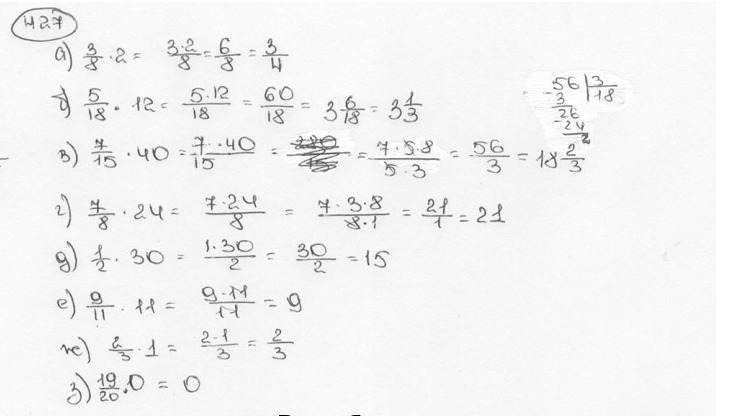 427
а) 3/8 · 2 = 3·2/8 = 6/8 = 3/4
б) 5/18 · 12 = 5·12/18 = 60/18 = 3 6/18 = 3 1/3
56 | 3
- 3 | 18
26
- 24
2
в) 7/15 · 40 = 7··40/15 = = 7·5·8/5·3 = 56/3 = 18 2/3
г) 7/8 · 24 = 7·24/8 = 7·3·8/8·1 = 21/1 = 21
д) 1/2 · 30 = 1·30/2 = 30/2 = 15
е) 9/11 · 11 = 9·11/11 = 9
ж) 2/3 · 1 = 2·1/3 = 2/3
з) 19/20 · 0 = 0